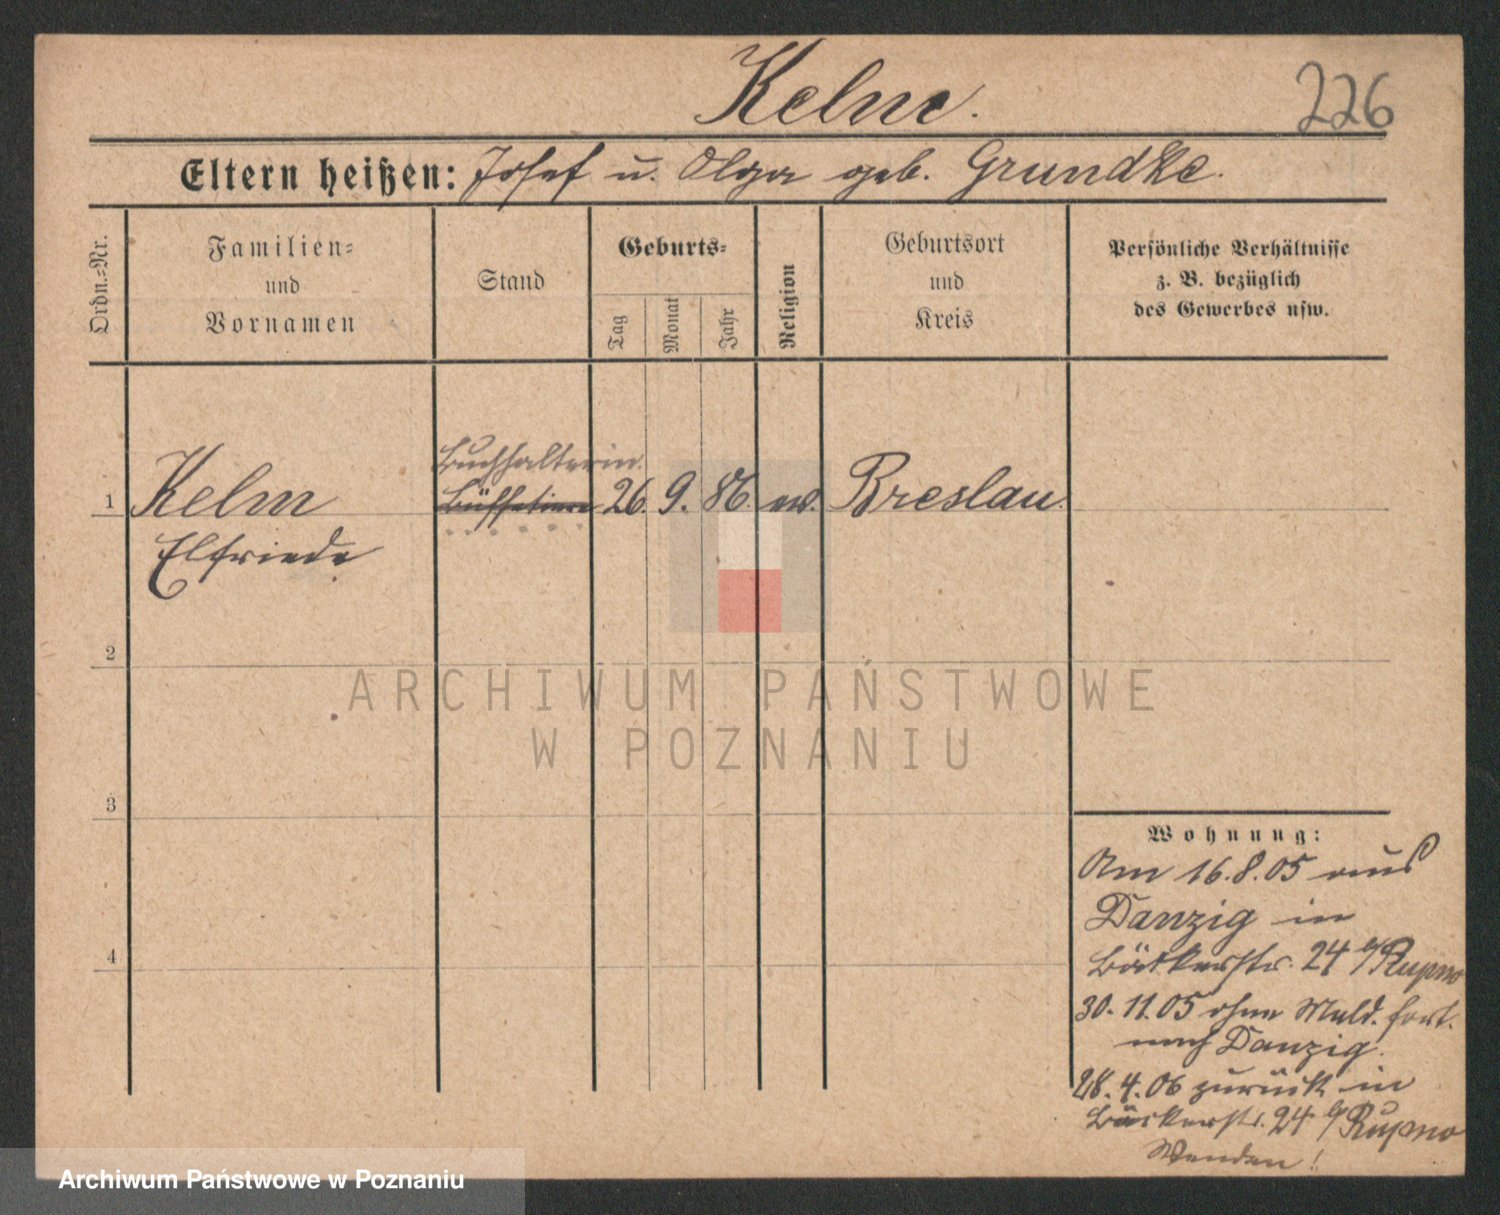 Kelm.
226
Eltern heißen: Josef u. Olga geb. Grundke.
Ordn.=Nr.
Familien=
und
Vornamen
Stand
Geburts=
Tag
Monat
Jahr
Religion
Geburtsort
und
Kreis
Persönliche Verhältnisse
z. B. bezüglich
des Gewerbes usw.
Buchhalterin.
1 Kelm Büffetiere 26. 9. 86. ev. Breslau.
Elfriede
2
3
4
Wohnung:
Am 16.8.05 aus
Danzig in
Bäckerstr. 24 b/Rupno
30. 11. 05 ohne Meld. fort.
nach Danzig.
28. 4. 06 zurück in
Bäckerstr. 24 b/Rupno
Wenden!
ARCHIWUM PAŃSTWOWE
W POZNANIU
Archiwum Państwowe w Poznaniu